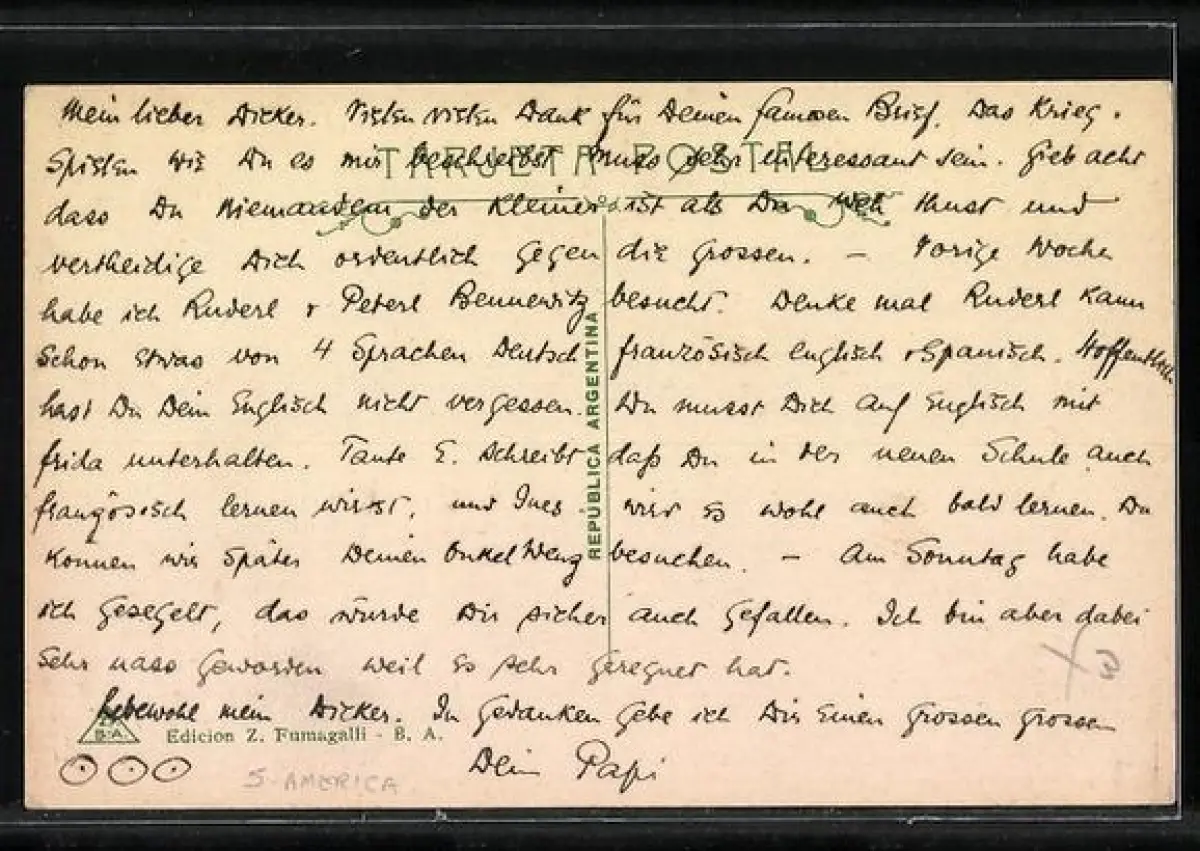 Mein lieber Dicker. Vielen vielen Dank für Deinen famosen Brief. Das Krieg-
TARJETA POSTAL
Spielen wie Du es mir beschreibst muss sehr interessant sein. Gieb acht
dass Du Niemandem der kleiner ist als Du weh thust und
vertheidige Dich ordentlich gegen die grossen. – Vorige Woche
habe ich Ruderl & Peterl Bennewitz besucht. Denke mal Ruderl kann
schon etwas von 4 Sprachen Deutsch französisch englisch & Spanisch. Hoffentlich
hast Du Dein Englisch nicht vergessen. Du musst Dich auf Englisch mit
Frida unterhalten. Tante E. schreibt daß Du in der neuen Schule auch
französisch lernen wirst, und Ines wird es wohl auch bald lernen. Du
können wir später Deinen Onkel besuchen. – Am Sonntag habe
ich gesegelt, das würde Dir sicher auch gefallen. Ich bin aber dabei
sehr nass geworden weil es sehr geregnet hat.
Lebewohl mein Dicker. In Gedanken gebe ich Dir einen grossen grossen
B.A.
Edicion Z. Fumagalli - B. A.
Dein Papi
S-AMERICA
REPÚBLICA ARGENTINA